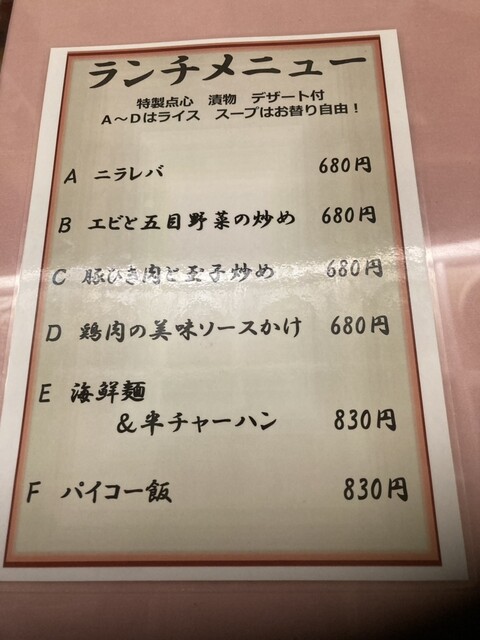 ランチメニュー
特製点心 漬物 デザート付
A～Dはライス スープはお替り自由！
A ニラレバ 680円
B エビと五目野菜の炒め 680円
C 豚ひき肉と玉子炒め 680円
D 鶏肉の美味ソースかけ 680円
E 海鮮麺
＆半チャーハン 830円
F パイコー飯 830円